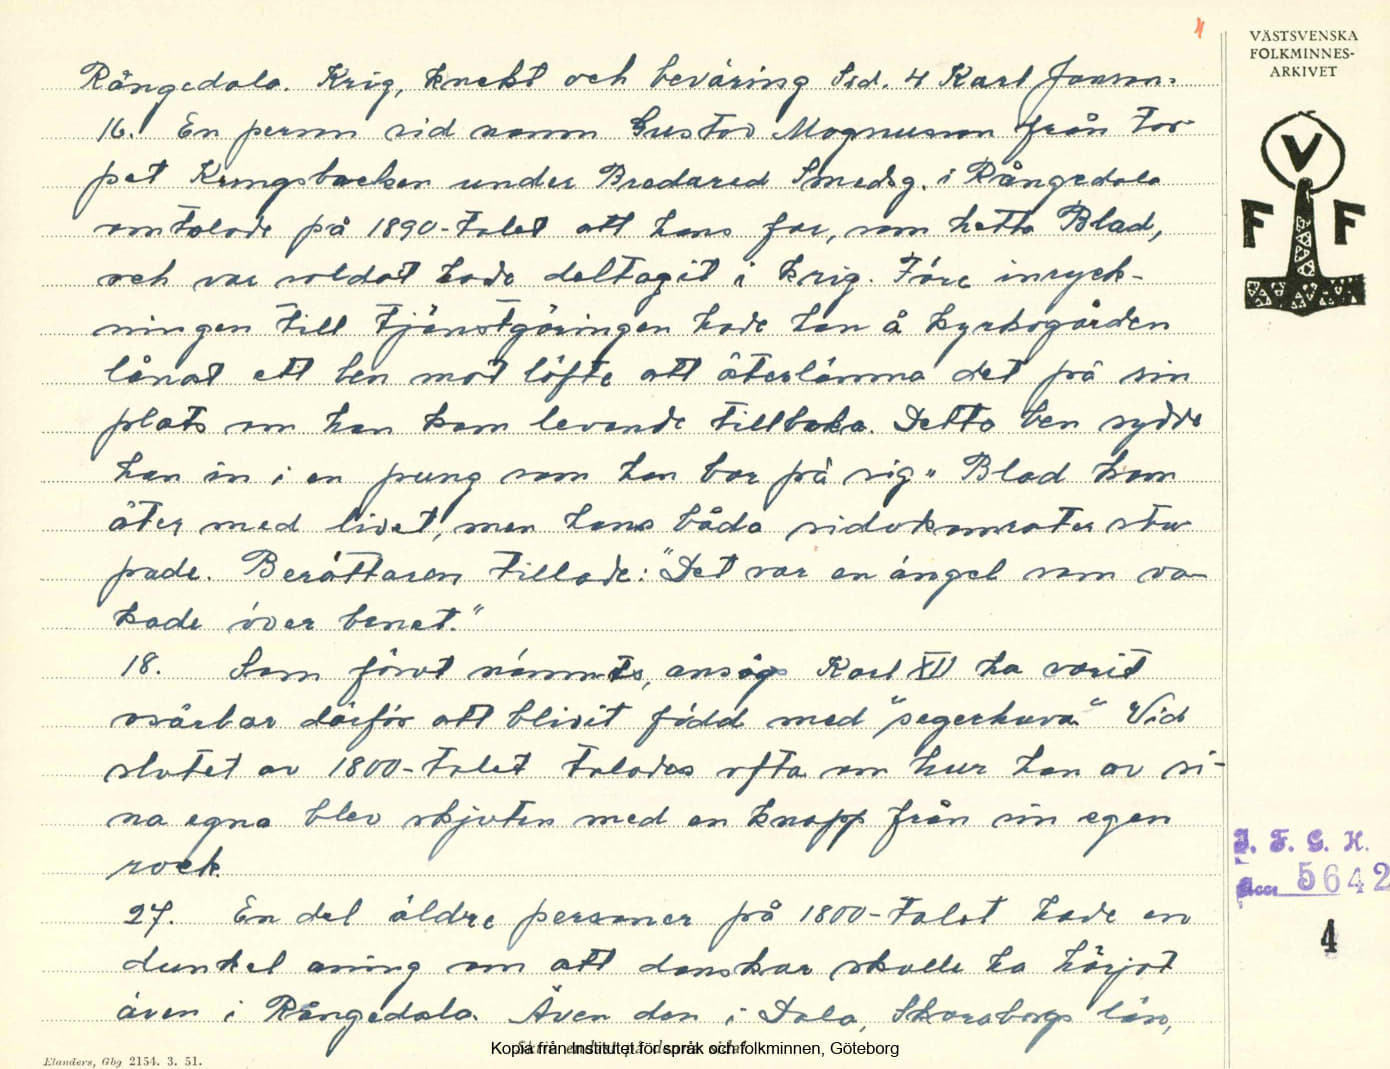 4
VÄSTSVENSKA
FOLKMINNES-
ARKIVET
V
F F
Rångedala. Krig, knekt och beväring Sid. 4 Karl Janson.
16. En person vid namn Gustav Magnusson från Tor-
pet Kungsbacken under Bredared Smedsg. i Rångedala
omtalade på 1890-talet att hans far, som hette Blad,
och var soldat hade deltagit i krig. Före inryck-
ningen till tjänstgöringen hade han å kyrkogården
lånat ett ben mot löfte att återlämna det på sin
plats om han kom levande tillbaka. Detta ben sydde
han in i en pung som han bar på sig. Blad kom
åter med livet, men hans båda sidokamrater stu-
pade. Berättaren tillade: "Det var en ängel som va-
kade över benet."
18. Som förut nämnts, ansågs Karl XII ha varit
osårbar därför att blivit född med "segerhuva" Vid
slutet av 1800-talet talades ofta om hur han av si-
na egna blev skjuten med en knapp från sin egen
rock.
27. En del äldre personer på 1800-talet hade en
dunkel aning om att danskar skulle ha härjat
även i Rångedala. Även den i Dala, Skaraborgs län,
I. F. G. H.
Acc. 5642
4
Elanders, Gbg 2154. 3. 51.
Kopia från Institutet för språk och folkminnen, Göteborg